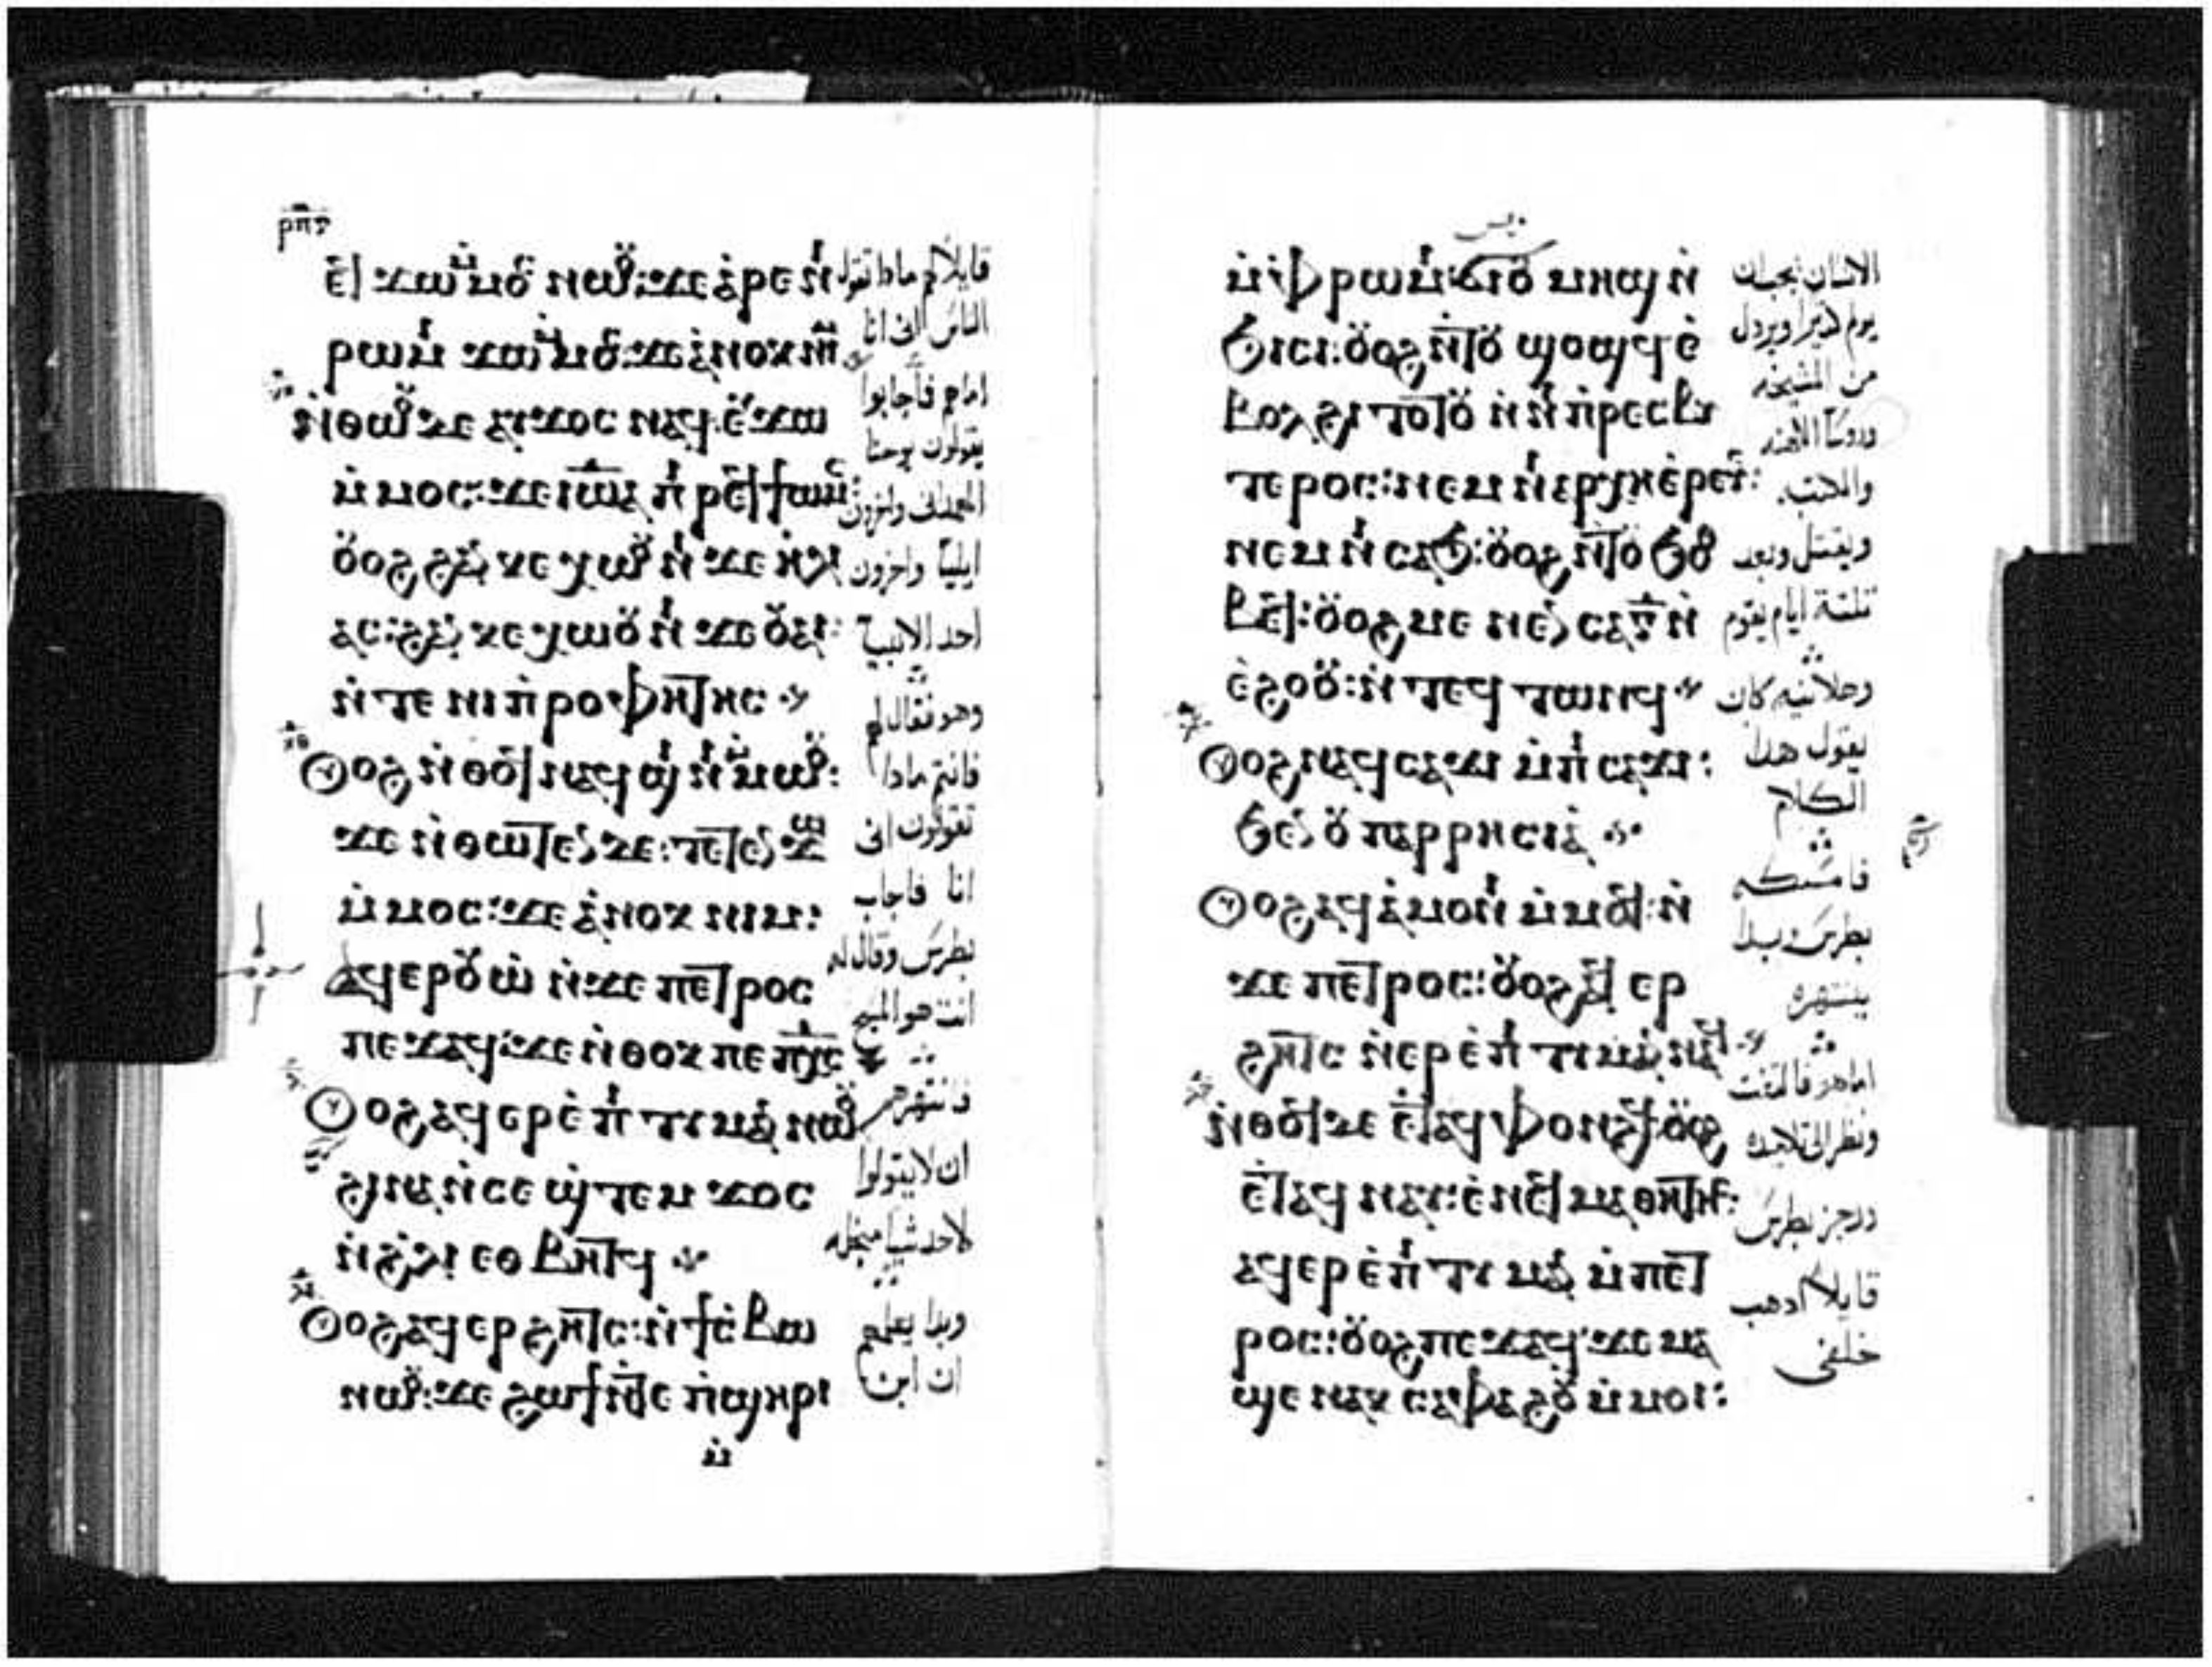 ⲣⲡⲅ
ⲉϥϫⲱ ⲙ̀ⲙⲟⲥ ⲛⲱⲟⲩ: ϫⲉ ⲁ̀ⲣⲉ ⲛⲓ
ⲣⲱⲙⲓ ϫⲱ ⲙ̀ⲙⲟⲥ: ϫⲉ ⲁ̀ⲛⲟⲕ ⲛⲓⲙ
ⲛ̀ⲑⲱⲟⲩ ⲇⲉ ⲁⲩϫⲟⲥ ⲛⲁϥ ⲉⲩϫⲱ
ⲙ̀ⲙⲟⲥ: ϫⲉ ⲓⲱⲁ ⲡⲓⲣⲉϥϯⲱⲙⲥ:
ⲟⲩⲟϩ ϩⲁⲛⲕⲉⲭⲱⲟⲩⲛⲓ ϫⲉ ⲏⲗⲓ
ⲁⲥ: ϩⲁⲛⲕⲉⲭⲱⲟⲩⲛⲓ ϫⲉ ⲟⲩⲁⲓ:
ⲛ̀ⲧⲉ ⲛⲓⲡ̀ⲣⲟⲫⲏⲧⲏⲥ
ⲟⲩⲟϩ ⲛ̀ⲑⲟϥ ⲛⲁϥϣⲓⲛⲓ ⲙ̀ⲙⲱⲟⲩ:
ϫⲉ ⲛ̀ⲑⲱⲧⲉⲛ ⲇⲉ: ⲧⲉⲧⲉⲛϫⲱ
ⲙ̀ⲙⲟⲥ: ϫⲉ ⲁ̀ⲛⲟⲕ ⲛⲓⲙ:
ⲁϥⲉⲣⲟⲩⲱ̀ ⲛ̀ϫⲉ ⲡⲉⲧⲣⲟⲥ
ⲡⲉϫⲁϥ: ϫⲉ ⲛ̀ⲑⲟⲕ ⲡⲉ ⲡⲭ̅ⲥ̅
ⲟⲩⲟϩ ⲁϥⲉⲣⲉ̀ⲡⲓⲧⲓⲙⲁⲛ ⲛⲱⲟⲩ
ϩⲓⲛⲁ ⲛ̀ⲥⲉϣ̀ⲧⲉⲙϫⲟⲥ
ⲛ̀ϩ̀ⲗⲓ ⲉⲑⲃⲏⲧϥ
ⲟⲩⲟϩ ⲁϥⲉⲣϩⲏⲧⲥ: ⲛ̀ϯⲥ̀ⲃⲱ
ⲛⲱⲟⲩ: ϫⲉ ϩⲱϯ ⲛ̀ⲧⲉ ⲡ̀ϣⲏⲣⲓ
ⲙ̀
قايلا لهم مادا تقول
الناس انى انا
اما هم فأجابوا
يقولون يوحنا
المعمدانى واخرون
ايليا واخرون
احد الانبيا
وهو فقال لهم
فانتم مادا
تقولون انى
انا فاجاب
بطرس وقال له
انت هو المسيح
فانتهرهم
ان لا يقولوا
لاحد شيا من اجله
وبدا يعلمهم
ان ابن
ⲙ̀ⲫ̀ⲣⲱⲙⲓ ϭⲓ ⲟⲩⲙⲏϣ ⲛ̀
ϭⲓⲥⲓ: ⲟⲩⲟϩ ⲛ̀ⲧⲟⲩϣⲟϣϥ ⲉ̀
ⲃⲟⲗ ϩⲓⲧⲟⲧⲟⲩ ⲛ̀ⲛⲓⲡ̀ⲣⲉⲥⲃⲩ
ⲧⲉⲣⲟⲥ: ⲛⲉⲙ ⲛⲓⲁⲣⲭⲏⲉ̀ⲣⲉⲩⲥ:
ⲛⲉⲙ ⲛⲓⲥⲁϧ: ⲟⲩⲟϩ ⲛ̀ⲧⲟⲩϧⲟⲑ
ⲃⲉϥ: ⲟⲩⲟϩ ⲙⲉⲛⲉⲛⲥⲁ ⲅ̅ ⲛ̀
ⲉ̀ϩⲟⲟⲩ: ⲛ̀ⲧⲉϥⲧⲱⲛϥ
ⲟⲩⲟϩ ⲛⲁϥⲥⲁϫⲓ ⲙ̀ⲡⲓⲥⲁϫⲓ:
ϧⲉⲛ ⲟⲩⲡⲁⲣⲣⲏⲥⲓⲁ̀
ⲟⲩⲟϩ ⲁϥⲁ̀ⲙⲟⲛⲓ ⲙ̀ⲙⲟϥ: ⲛ̀
ϫⲉ ⲡⲉⲧⲣⲟⲥ: ⲟⲩⲟϩ ⲁϥⲉⲣ
ϩⲏⲧⲥ ⲛ̀ⲉⲣⲉ̀ⲡⲓⲧⲓⲙⲁⲛ ⲛⲁϥ
ⲛ̀ⲑⲟϥ ⲇⲉ ⲉ̀ⲧⲁϥⲫⲟⲛϩϥ: ⲟⲩⲟϩ
ⲉ̀ⲧⲁϥⲛⲁⲩ: ⲉ̀ⲛⲉϥⲙⲁⲑⲏⲧⲏⲥ:
ⲁϥⲉⲣⲉ̀ⲡⲓⲧⲓⲙⲁⲛ ⲙ̀ⲡⲉⲧ
ⲣⲟⲥ: ⲟⲩⲟϩ ⲡⲉϫⲁϥ: ϫⲉ ⲙⲁ
ϣⲉ ⲛⲁⲕ ⲥⲁⲫⲁϩⲟⲩ ⲙ̀ⲙⲟⲓ:
الانسان
ويردل
من المشيخه
وروسا الكهنه
والكتبه
ويقتل وبعد
تلتة ايام يقوم
وعلانيه كان
يقول هدا
الكلام
فامسكه
بطرس وبدا
ينتهره
اما هو فالتفت
ونظر الى تلاميده
وزجر بطرس
قايلا ادهب
خلفى